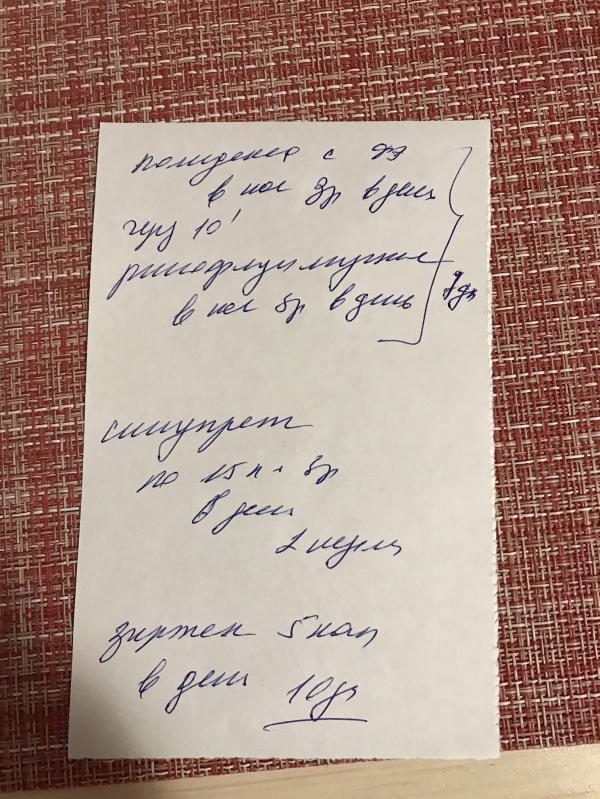 полидекса с фэ
в нос 3р в день
через 10'
ринофлуимуцил
в нос 3р в день
7дн
синупрет
по 15 к. 3р
в день
2 недели
зиртек 5 кап
в день 10дн